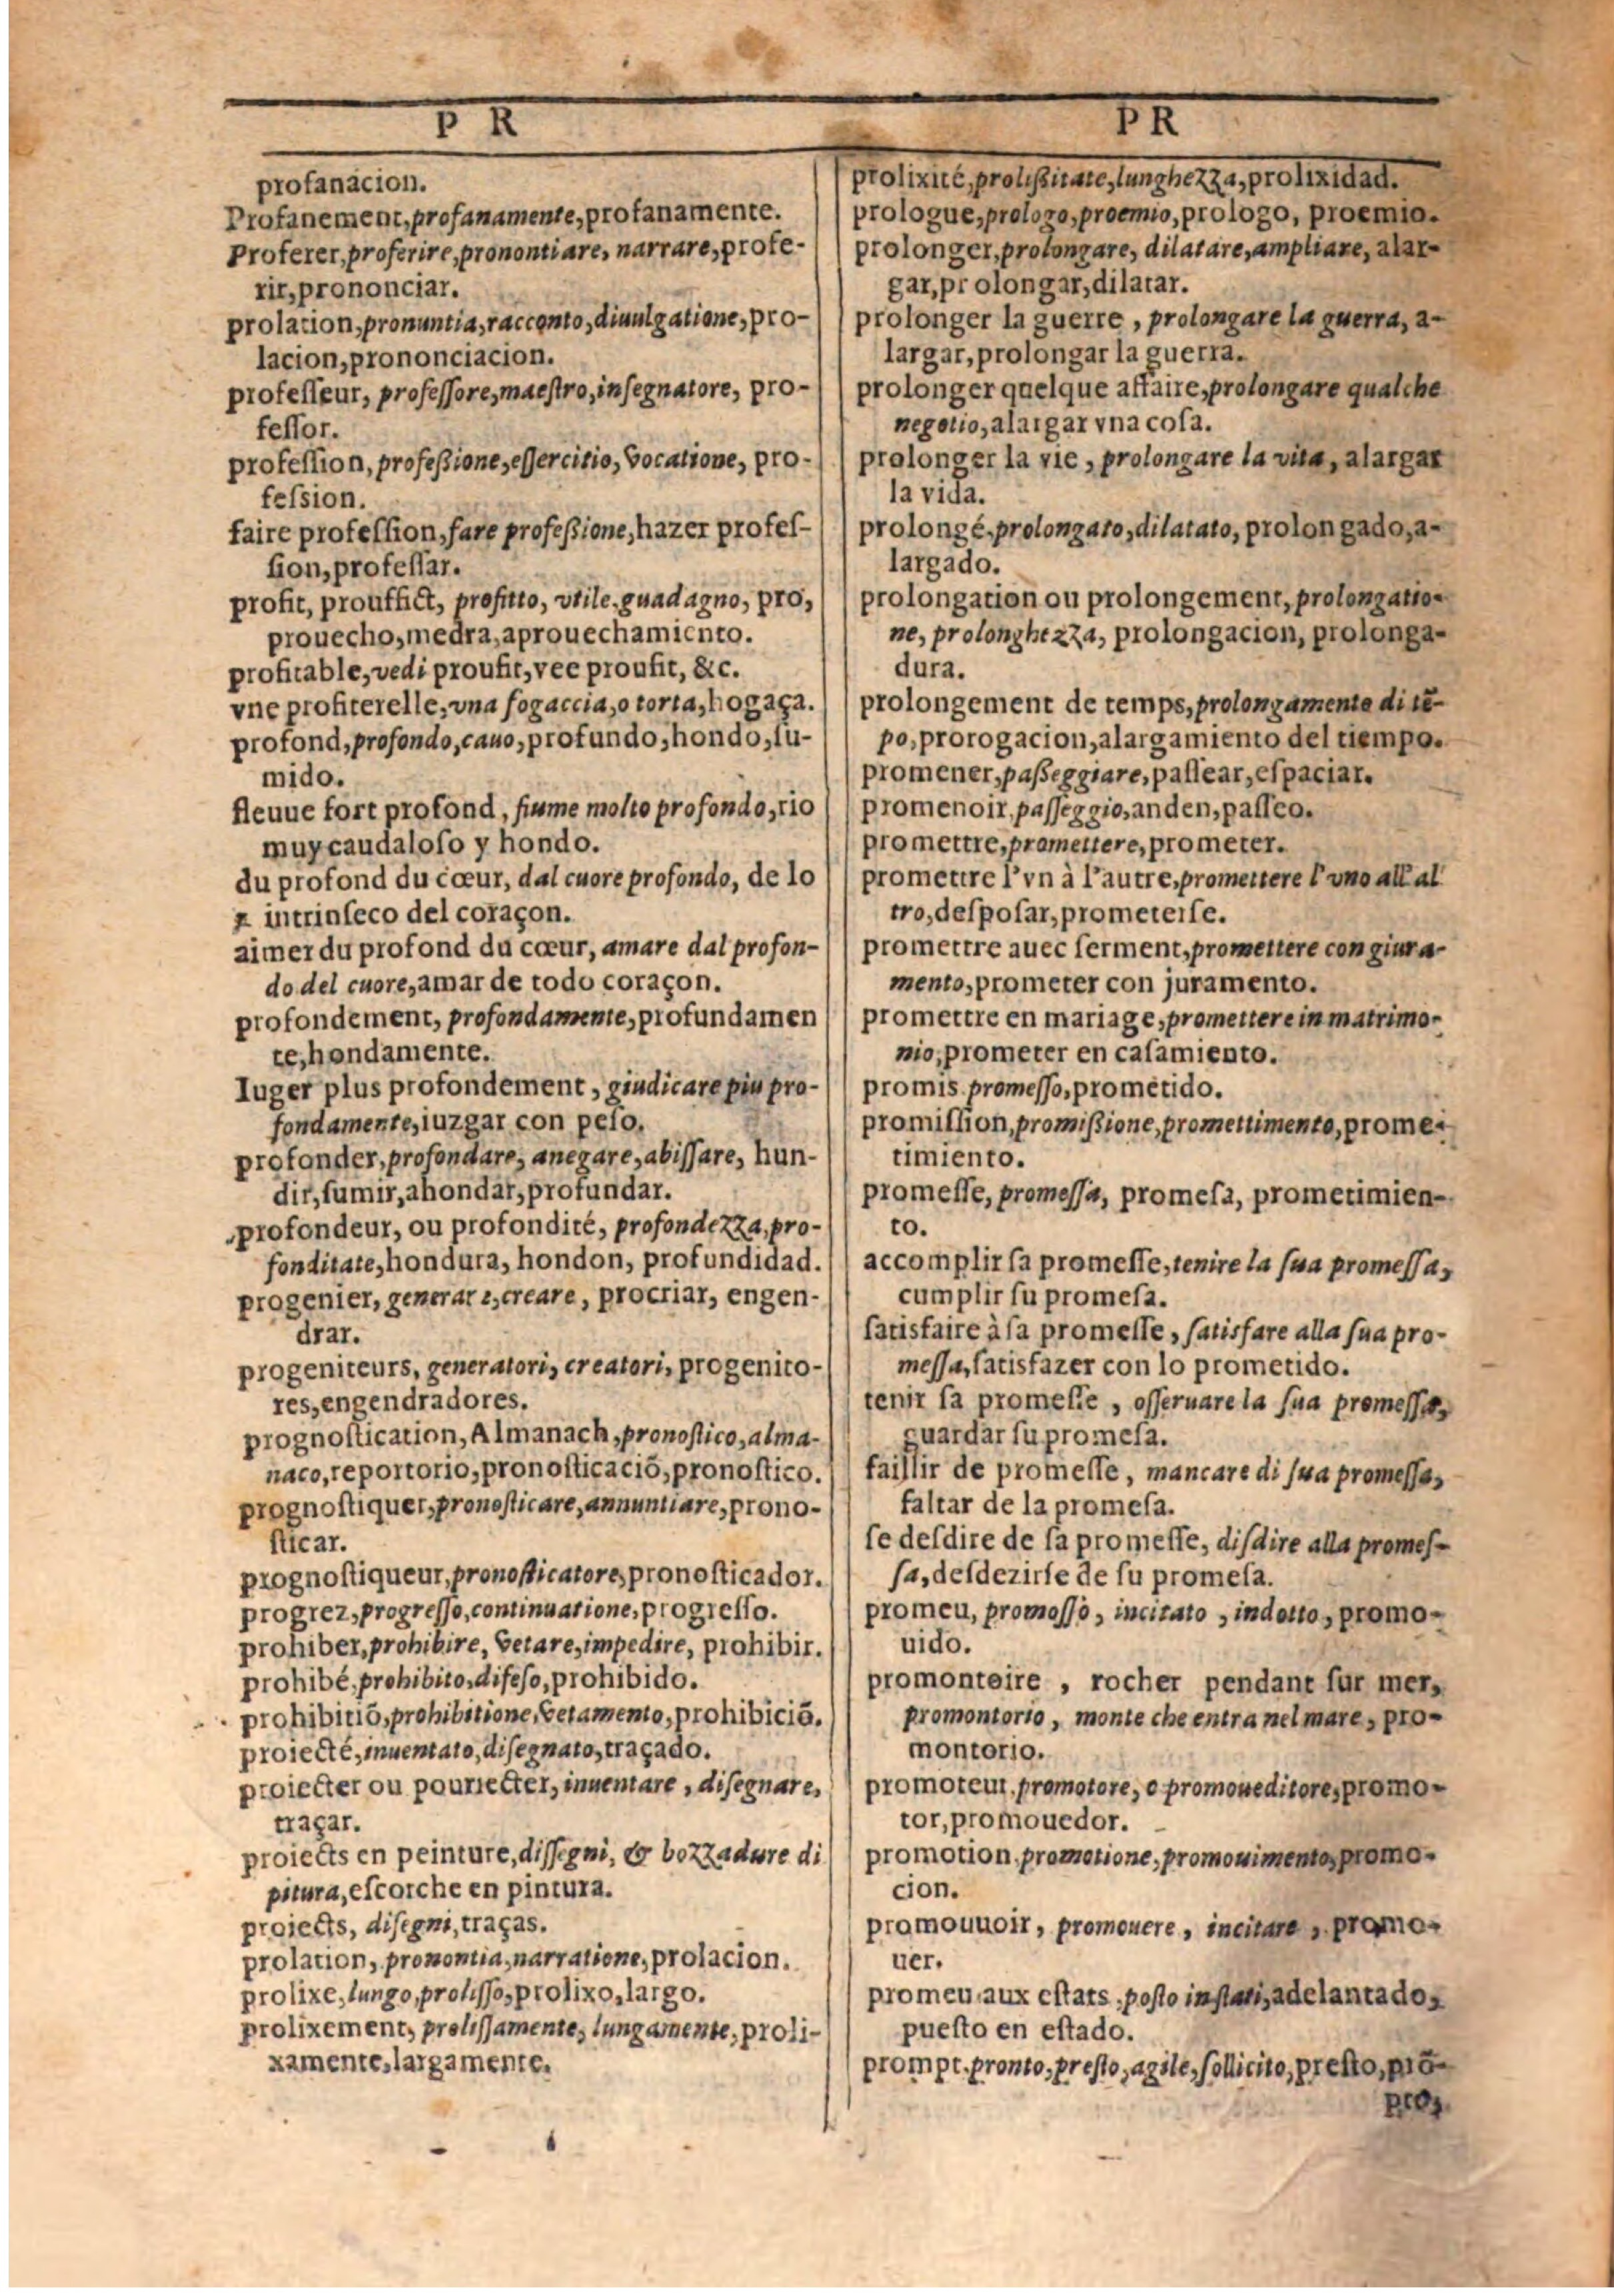 P R
profanacion.
Profanement,profanamente,profanamente.
Proferer,proferire,pronontiare, narrare,profe-
rir,prononciar.
prolation,pronuntia,racconto,diuulgatione,pro-
lacion,prononciacion.
professeur, professore,maestro,insegnatore, pro-
feſſor.
profeſſion, profeßione,eſſercitio, vocatione, pro-
feſsion.
faire profeſſion,fare profeßione,hazer profeſ-
ſion,profeſſar.
profit, prouffict, profitto, vtile,guadagno, pro,
prouecho,medra,aprouechamiento.
profitable,vedi proufit,vee proufit, &c.
vne profiterelle,vna fogaccia,o torta,hogaça.
profond,profondo,cauo,profundo,hondo,ſu-
mido.
fleuue fort profond, fiume molto profondo,rio
muy caudaloſo y hondo.
du profond du cœur, dal cuore profondo, de lo
intrinſeco del coraçon.
aimer du profond du cœur, amare dal profon-
do del cuore,amar de todo coraçon.
profondement, profondamente,profundamen
te,hondamente.
Iuger plus profondement, giudicare piu pro-
fondamente,iuzgar con peſo.
profonder,profondare, anegare,abiſſare, hun-
dir,ſumir,ahondar,profundar.
profondeur, ou profondité, profondezza,pro-
fonditate,hondura, hondon, profundidad.
progenier, generare,creare, procriar, engen-
drar.
progeniteurs, generatori, creatori, progenito-
res,engendradores.
prognoſtication, Almanach,pronoſtico,alma-
naco,reportorio,pronoſticaciō,pronoſtico.
prognoſtiquer,pronoſticare,annuntiare,prono-
ſticar.
prognoſtiqueur,pronoſticatore,pronoſticador.
progrez,progreſſo,continuatione,progreſſo.
prohiber,prohibire, vetare,impedire, prohibir.
prohibé,prohibito,difeſo,prohibido.
prohibitiō,prohibitione,vetamento,prohibiciō.
proiecté,inuentato,diſegnato,traçado.
proiecter ou pouriecter, inuentare, diſegnare,
traçar.
proiects en peinture,diſſegni, & bozzadure di
pitura,eſcorche en pintura.
proiects, diſegni,traças.
prolation, pronontia,narratione,prolacion.
prolixe,lungo,proliſſo,prolixo,largo.
prolixement, proliſſamente, lungamente,proli-
xamente,largamente.
P R
prolixité,prolißitate,lunghezza,prolixidad.
prologue,prologo,proemio,prologo, proemio.
prolonger,prolongare, dilatare,ampliare, alar-
gar,pr olongar,dilatar.
prolonger la guerre, prolongare la guerra, a-
largar,prolongar la guerra.
prolonger quelque affaire,prolongare qualche
negotio,alargar vna coſa.
prolonger la vie, prolongare la vita, alargar
la vida.
prolongé,prolongato,dilatato, prolongado,a-
largado.
prolongation ou prolongement, prolongatio-
ne, prolonghezza, prolongacion, prolonga-
dura.
prolongement de temps,prolongamento di tē-
po,prorogacion,alargamiento del tiempo.
promener,paßeggiare,paſſear,eſpaciar.
promenoir,paſſeggio,anden,paſſeo.
promettre,promettere,prometer.
promettre l'vn à l'autre,promettere l'vno all'al
tro,deſpoſar,prometerſe.
promettre auec ſerment,promettere con giura-
mento,prometer con juramento.
promettre en mariage,promettere in matrimo-
nio,prometer en caſamiento.
promis promeſſo,prometido.
promiſſion,promißione,promettimento,prome-
timiento.
promeſſe, promeſſa, promeſa, prometimien-
to.
accomplir ſa promeſſe,tenire la ſua promeſſa,
cumplir ſu promeſa.
ſatisfaire à ſa promeſſe, ſatisfare alla ſua pro-
meſſa,ſatisfazer con lo prometido.
tenir ſa promeſſe, oſſeruare la ſua promeſſa,
guardar ſu promeſa.
faillir de promeſſe, mancare di ſua promeſſa,
faltar de la promeſa.
ſe deſdire de ſa promeſſe, diſdire alla promeſ-
ſa,deſdezirſe de ſu promeſa.
promeu, promoſſo, incitato, indotto, promo-
uido.
promontoire, rocher pendant ſur mer,
promontorio, monte che entra nel mare, pro-
montorio.
promoteur,promotore, o promoueditore,promo-
tor,promouedor.
promotion,promotione,promouimento,promo-
cion.
promouuoir, promouere, incitare, promo-
uer.
promeu aux eſtats,poſto in ſtati,adelantado,
pueſto en eſtado.
prompt,pronto,preſto,agile,ſollicito,preſto,prō-
pto,